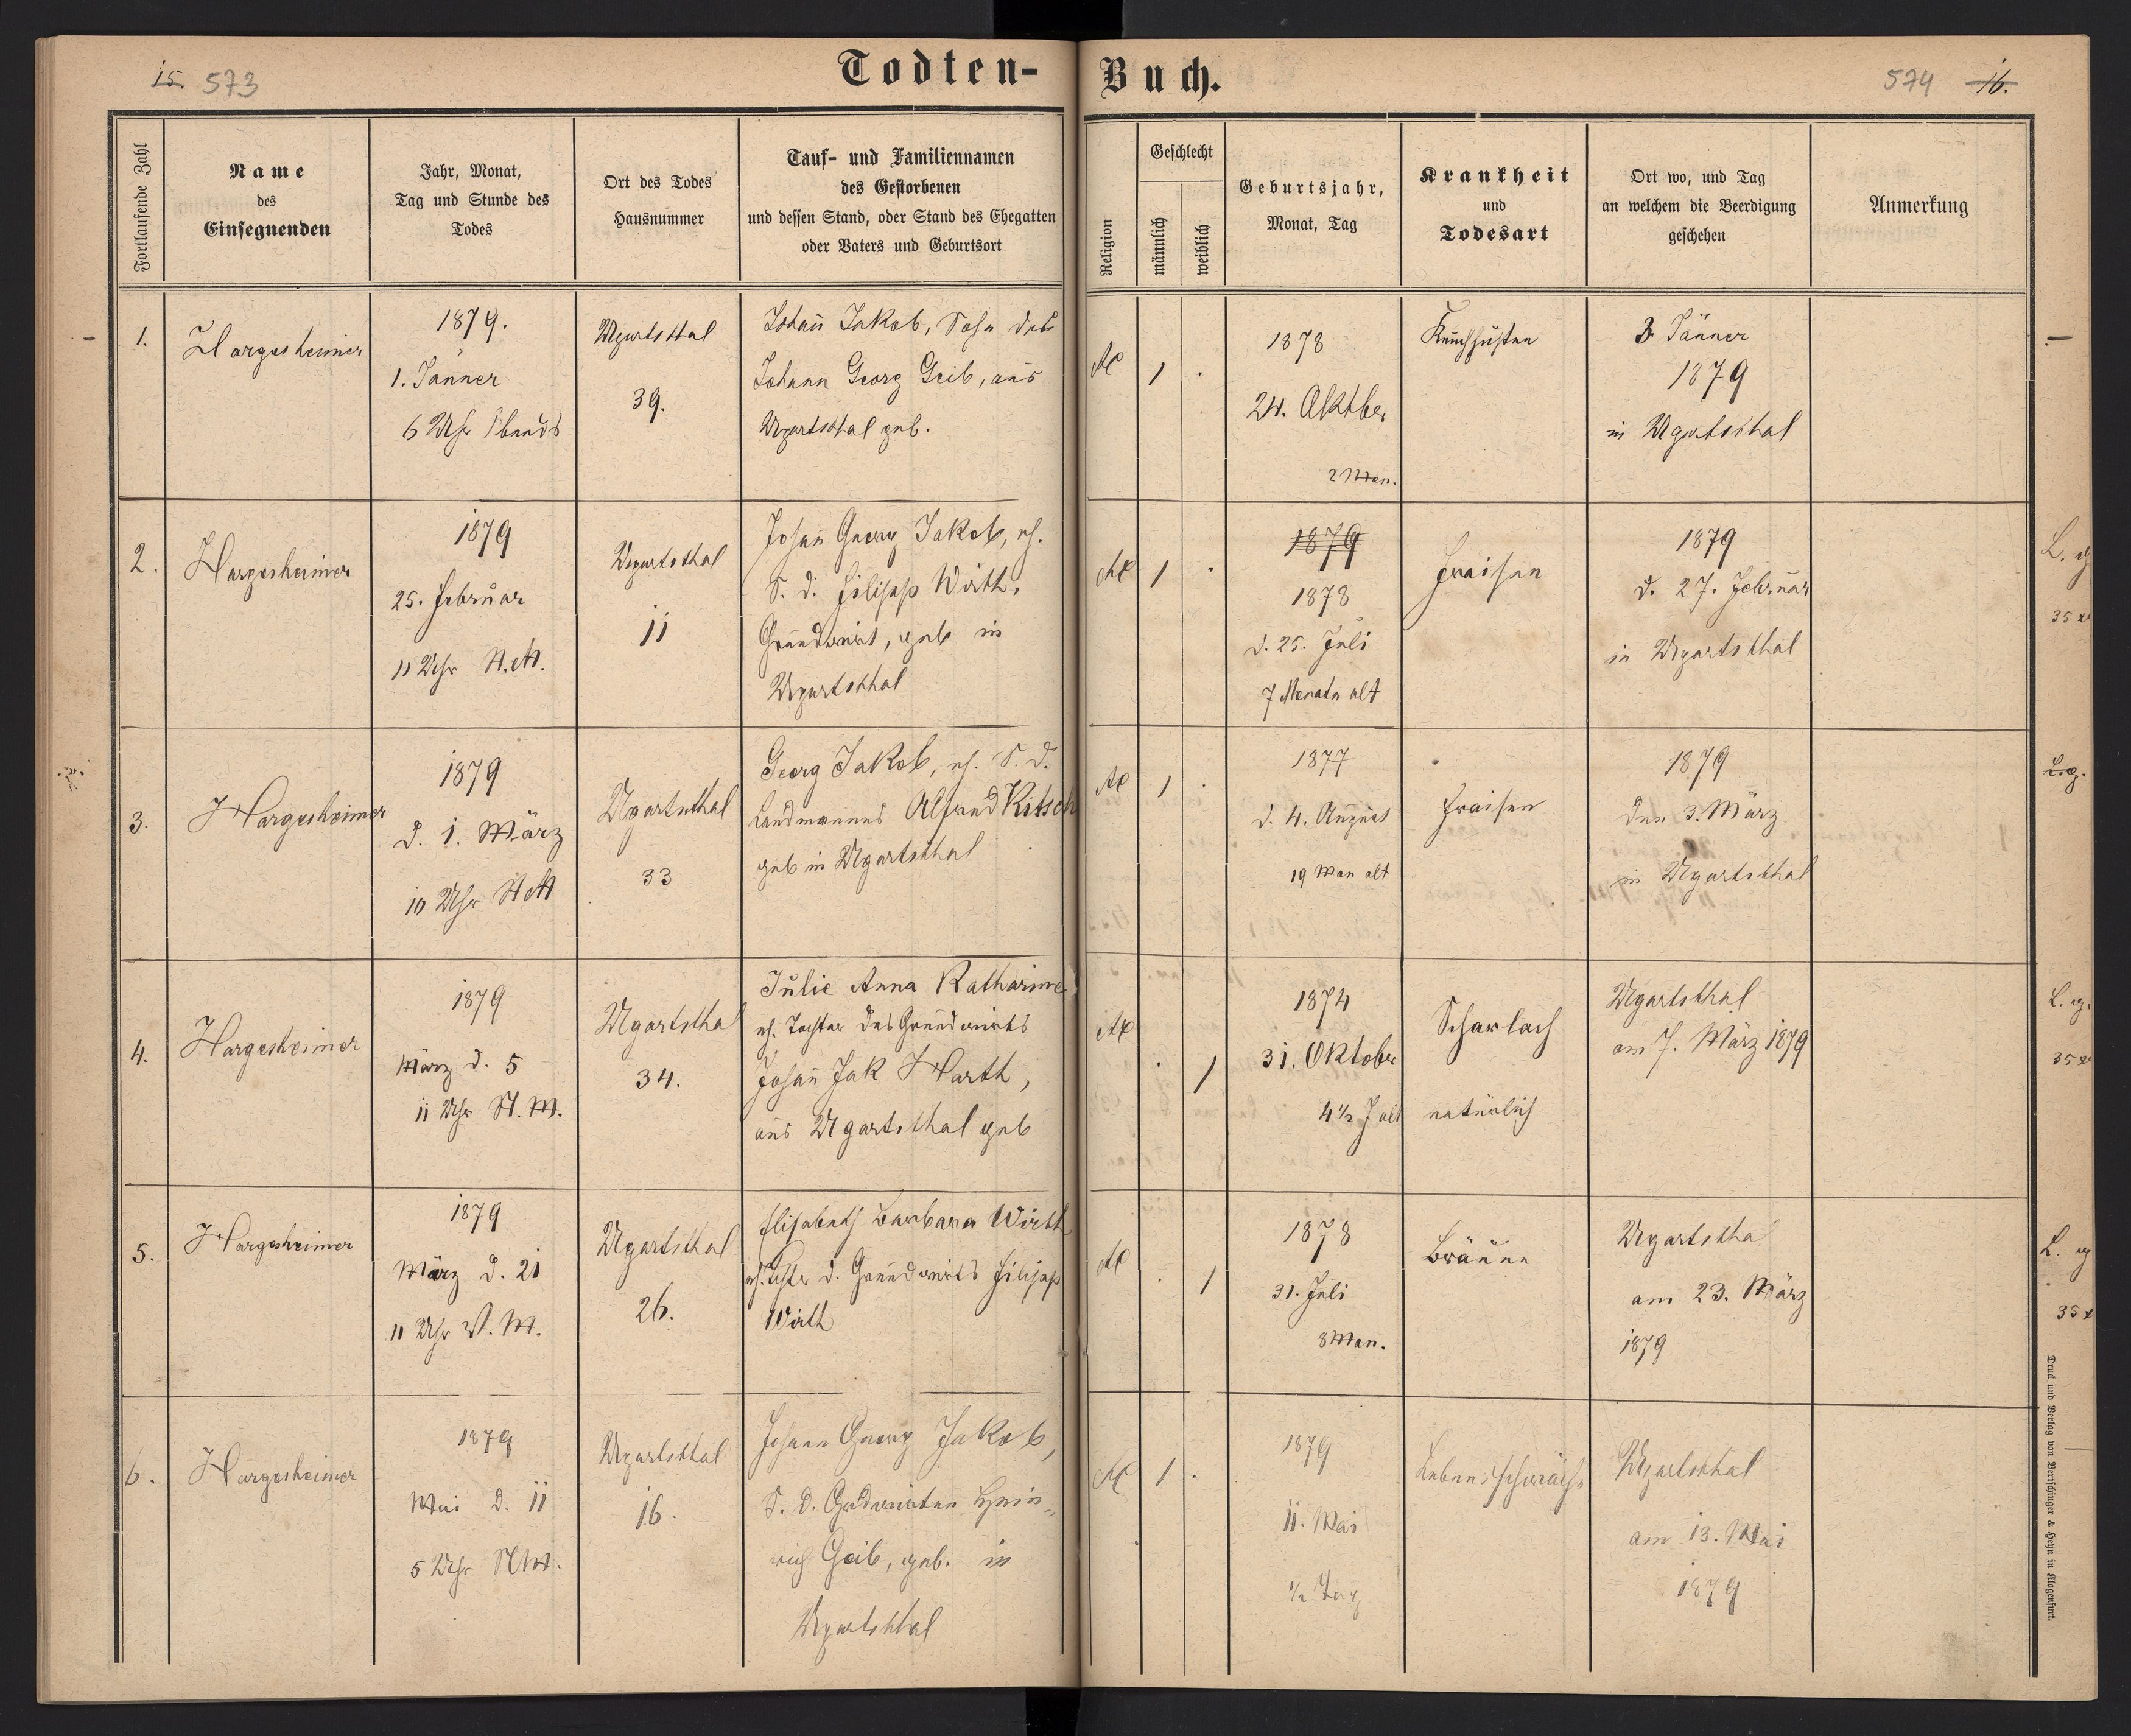 15. 573
Todten-Buch.
574 16.
Fortlaufende Zahl
Name
des
Einsegnenden
Jahr, Monat,
Tag und Stunde des
Todes
Ort des Todes
Hausnummer
Tauf- und Familiennamen
des Gestorbenen
und dessen Stand, oder Stand des Ehegatten
oder Vaters und Geburtsort
Religion
Geschlecht
männlich
weiblich
Geburtsjahr,
Monat, Tag
Krankheit
und
Todesart
Ort wo, und Tag
an welchem die Beerdigung
geschehen
Anmerkung
1.
Hargesheimer
1879.
1. Jänner
6 Uhr Abends
Ugartsthal
39.
Johañ Jakob, Sohn des
Johann Georg Geib, aus
Ugartsthal geb.
1 .
1878
24. Oktber
2 Mon.
Keuchhusten
3 Jänner
1879
in Ugartsthal
2.
Hargesheimer
1879
25. Februar
11 Uhr N.M.
Ugartsthal
11
Johañ Georg Jakob, eh.
S. d. Filipp Wirth,
Grundwirt, geb in
Ugartsthal
1 .
1879
1878
d. 25. Juli
7 Monate alt
Fraisen
1879
d. 27. Februar
in Ugartsthal
L. g
35 x
3.
Hargesheimer
1879
d. 1. März
10 Uhr N M
Ugartsthal
33
Georg Jakob, eh. S. d.
Landmannes Alfred Kitsch
geb in Ugartsthal
1 .
1877
d. 4. August
19 Mon alt
Fraisen
1879
den 3. März
in Ugartsthal
L. g.
4.
Hargesheimer
1879
März d. 5
11 Uhr N. M.
Ugartsthal
34.
Julie Anna Katharine
eh. Tochter des Grundwirts
Johañ Jak Harth,
aus Ugartsthal geb
. 1
1874
31. Oktober
4 ½ J alt
Scharlach
natürlich
Ugartsthal
am 7. März 1879
L. g.
35 x
5.
Hargesheimer
1879
März d. 21
11 Uhr V. M.
Ugartsthal
26.
Elisabeth Barbara Wirth
eh. Tochter d. Grundwirts Filipp
Wirth
. 1
1878
31. Juli
8 Mon.
Bräune
Ugartstha
am 23. März
1879
L. g
35 x
6.
Hargesheimer
1879
Mai d. 11
5 Uhr N M.
Ugartsthal
16.
Johann Georg Jakob,
S. d. Grdwirten Hein-
rich Geib, geb. in
Ugartsthal
1 .
1879
11. Mai
½ Tag
Lebensschwäche
Ugartsthal
am 13. Mai
1879
Druck und Verlag von Bertschinger & Heyn in Klagenfurt.